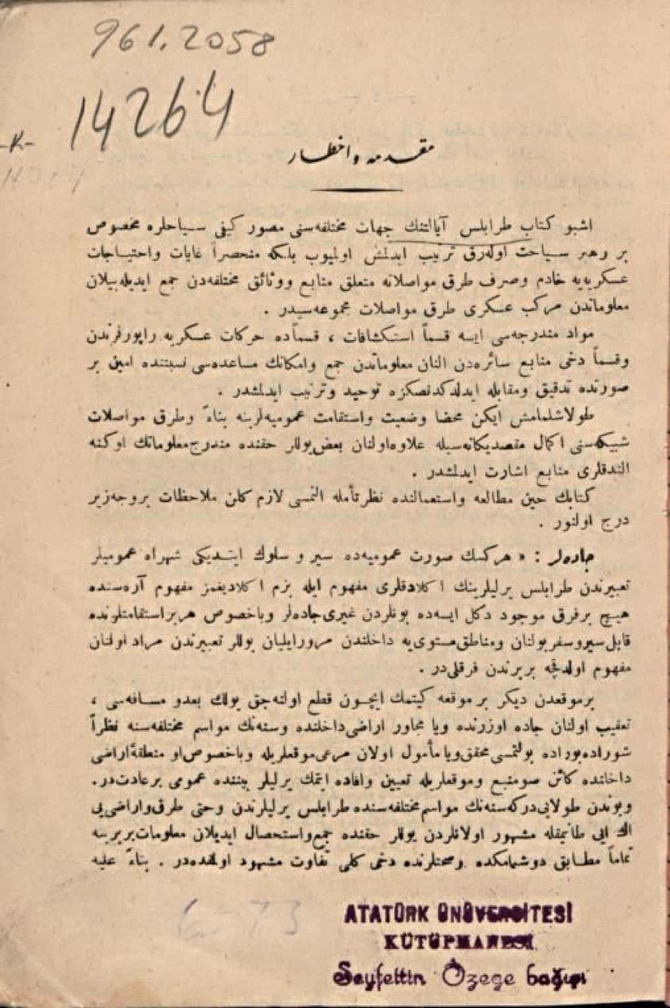 961.2058
14264
-K-
مقدمه واخطار
اشبو كتاب طرابلس آيالتنك جهات مختلفه‌سنى مصور كيفى سياحلره مخصوص
بر رهبر سياحت اوله‌رق ترتيب ايدلمش اولميوب بلكه منحصراً غايات واحتياجات
عسكريه‌يه خادم وصرف طرق مواصلاته متعلق منابع ووثائق مختلفه‌دن جمع ايديله‌بيلان
معلوماتدن مركب عسكرى طرق مواصلات مجموعه‌سيدر .
مواد مندرجه‌سى ايسه قسماً استكشافات ، قسماًده حركات عسكريه راپورلرندن
وقسماً دخى منابع سائره‌دن النان معلوماتدن جمع وامكانك مساعده‌سى نسبتنده امين بر
صورتده تدقيق ومقابله ايدلدكدنصكره توحيد وترتيب ايدلمشدر .
طولاشلمامش ايكن محضا وضعيت واستقامت عموميه‌لرينه بناءً وطرق مواصلات
شبكه‌سنى اكمال مقصديكانه‌سيله علاوه‌اولنان بعض‌يوللر حقنده مندرج معلوماتك اوكنه
الندقلرى منابع اشارت ايدلمشدر .
كتابك حين مطالعه واستعمالنده نظر تأمله النمسى لازم كلن ملاحظات بروجه‌زير
درج اولنور .
جاده‌لر : « هركسك صورت عموميه‌ده سير و سلوك ايتديكى شهراه عموميلر
تعبيرندن طرابلس يرليلرينك اكلادقلرى مفهوم ايله بزم اكلاديغمز مفهوم آره‌سنده
هيچ برفرق موجود دكل ايسه‌ده بونلردن غيرى جاده‌لر وباخصوص هربر استقامتلرنده
قابل سيروسفر بولنان ومناطق مستويه داخلندن مرورايليان يوللر تعبيرندن مراد اولنان
مفهوم اولدقجه بربرندن فرقلى‌در .
برموقعدن ديكر بر موقعه كيتمك ايچون قطع اولنه‌جق يولك بعدو مسافه‌سى ،
تعقيب اولنان جاده اوزرنده ويا مجاور اراضى داخلنده وسنه‌نك مواسم مختلفه‌سنه نظراً
شوراده‌بوراده بولنمسى محقق‌ويا مأمول اولان مرعى موقعلريله وباخصوص‌او منطقهٔ‌اراضى
داخلنده كائن صومنبع وموقعلريله تعيين وافاده ايتمك يرليلر بيننده عمومى برعادت‌در.
وبوندن طولايى‌دركه‌سنه‌نك مواسم مختلفه‌سنده طرابلس يرليلرندن وحتى طرق‌واراضى‌يى
اك ايى طانيمقله مشهور اولانلردن يوللر حقنده جمع‌واستحصال ايديلان معلومات بربرينه
تماماً مطابق دوشمامكده وصحتلرنده دخى كلى تفاوت مشهود اولمقده‌در . بناءً عليه
ATATÜRK ÜNÜVERSİTESİ
KÜTÜPHANESİ
Seyfettin Özege bağışı